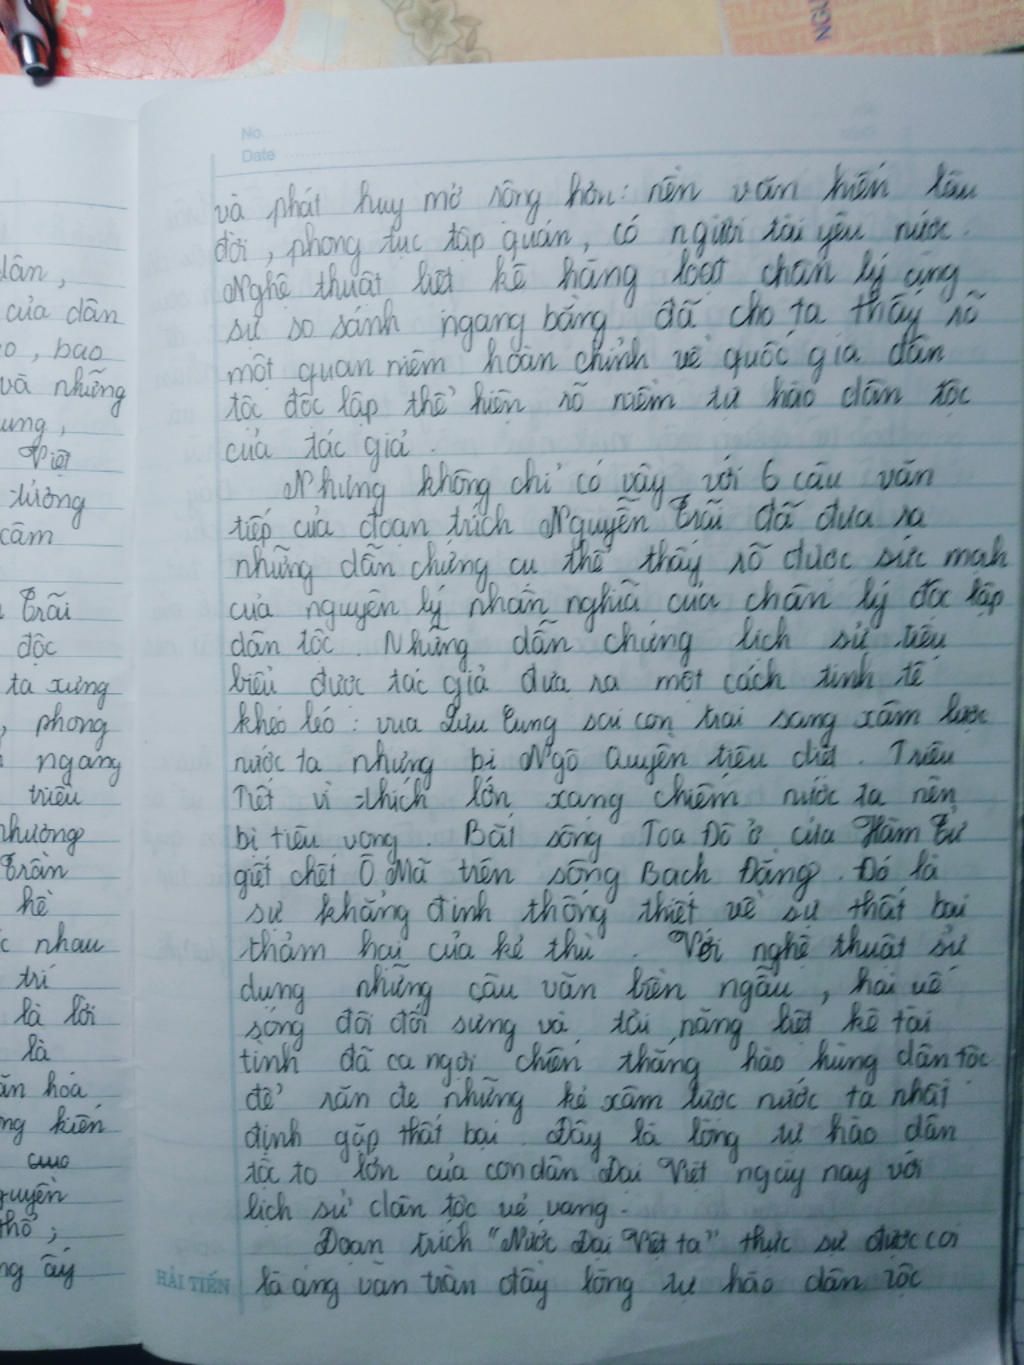 NGU
No
Date
và phát huy mở rộng hơn: nền văn hiến lâu
đời, phong tục tập quán, có người tài yêu nước.
Nghệ thuật liệt kê hàng loạt chân lý cùng
sự so sánh ngang bằng đã cho ta thấy rõ
một quan niệm hoàn chỉnh về quốc gia dân
tộc độc lập thể hiện rõ niềm tự hào dân tộc
của tác giả.
Nhưng không chỉ có vậy với 6 câu văn
tiếp của đoạn trích Nguyễn Trãi đã đưa ra
những dẫn chứng cụ thể thấy rõ được sức mạnh
của nguyên lý nhân nghĩa của chân lý độc lập
dân tộc. Những dẫn chứng lịch sử tiêu
biểu được tác giả đưa ra một cách tinh tế
khéo léo: vua Lưu Cung sai con trai sang xâm lược
nước ta nhưng bị Ngô Quyền tiêu diệt. Triệu
Tiết vì thích lớn xang chiếm nước ta nên
bị tiêu vong. Bắt sống Toa Đô ở cửa Hàm Tử
giết chết Ô Mã trên sông Bạch Đằng. Đó là
sự khẳng định thống thiết về sự thất bại
thảm hại của kẻ thù. Với nghệ thuật sử
dụng những câu văn biền ngẫu, hai vế
sóng đôi đối sưng và tài năng liệt kê tài
tình đã ca ngợi chiến thắng hào hùng dân tộc
để răn đe những kẻ xâm lược nước ta nhất
định gặp thất bại. Đây là lòng tự hào dân
tộc to lớn của con dân Đại Việt ngày nay với
lịch sử dân tộc vẻ vang.
Đoạn trích "Nước Đại Việt ta" thực sự được coi
là áng văn tràn đầy lòng tự hào dân tộc
HẢI TIẾN
dân,
của dân
o, bao
và những
ưng,
Việt
tướng
cảm
Trãi
độc
ta xưng
, phong
ngang
triều
phương
Trần
hề
c nhau
trí
là lời
là
ăn hóa
ng kiến
guyên
thổ;
ng ấy